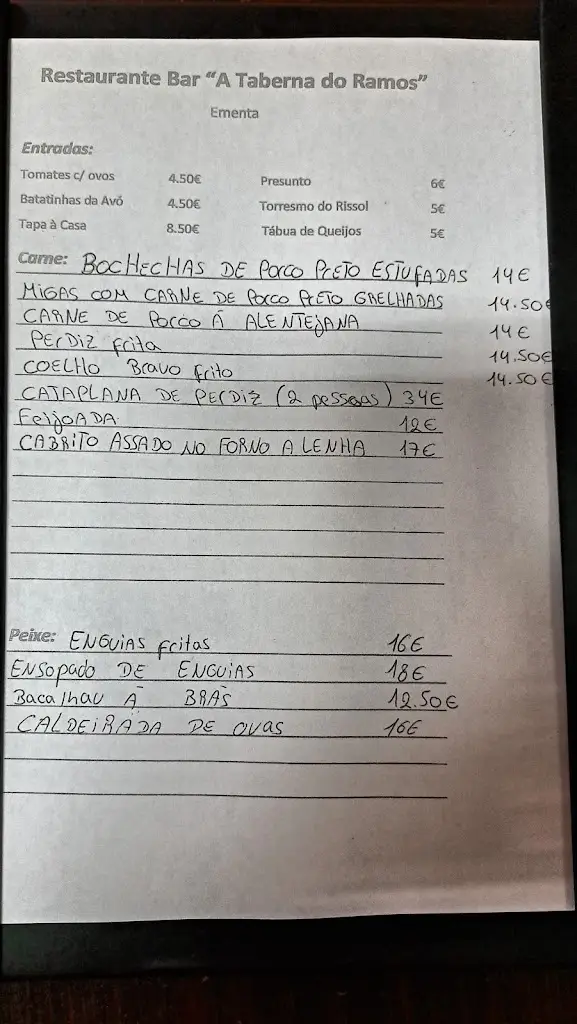 Restaurante Bar “A Taberna do Ramos”
Ementa
Entradas:
Tomates c/ ovos 4.50€ Presunto 6€
Batatinhas da Avó 4.50€ Torresmo do Rissol 5€
Tapa à Casa 8.50€ Tábua de Queijos 5€
Carne: BOCHECHAS DE PORCO PRETO ESTUFADAS 14€
MIGAS COM CARNE DE PORCO PRETO GRELHADAS 14.50€
CARNE DE PORCO Á ALENTEJANA 14€
PERDIZ frita 14.50€
COELHO Bravo frito 14.50€
CATAPLANA DE PERDIZ (2 pessoas) 34€
FeijoADA 12€
CABRITO ASSADO NO FORNO A LENHA 17€
Peixe: ENGUIAS fritas 16€
ENSOPADO DE ENGUIAS 18€
Bacalhau Á BRÁS 12.50€
CALDEIRADA DE OVAS 16€